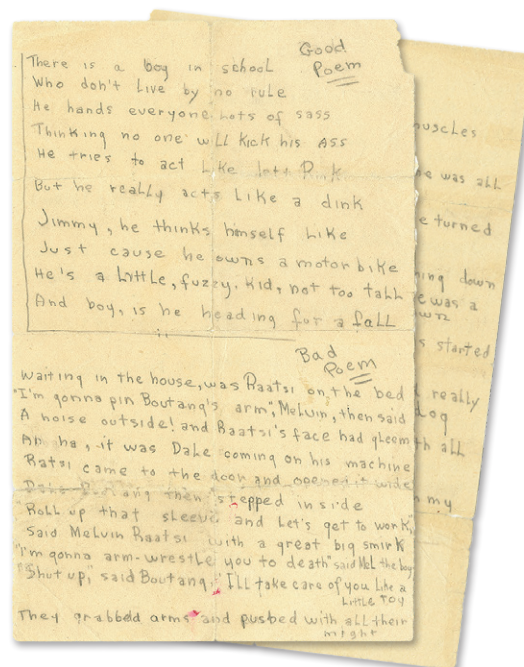 Good
Poem
There is a boy in school
Who don't Live by no rule
He hands everyone Lots of sass
Thinking no one will kick his ASS
He tries to act Like
But he really acts Like a dink
Jimmy, he thinks himself Like
Just cause he owns a motor bike
He's a Little, fuzzy, kid, not too tall
And boy, is he heading for a fall
Bad
Poem
waiting in the house, was Raatsi on the bed
"I'm gonna pin Boutang's arm", Melvin, then said
A noise outside! and Raatsi's face had gleem
Ah ha, it was Dale coming on his machine
Ratsi came to the door and opened it wide
Dale Boutang then stepped inside
Roll up that sleeve and Let's get to work,
said Melvin Raatsi with a great big smirk
"I'm gonna arm-wrestle you to death" said Mel the boy
"Shut up," said Boutang," I'll take care of you Like a
Little Toy
They grabbed arms and pushed with all their
might
muscles
he was all
he turned
down
was a
started
really
dog
th all
my